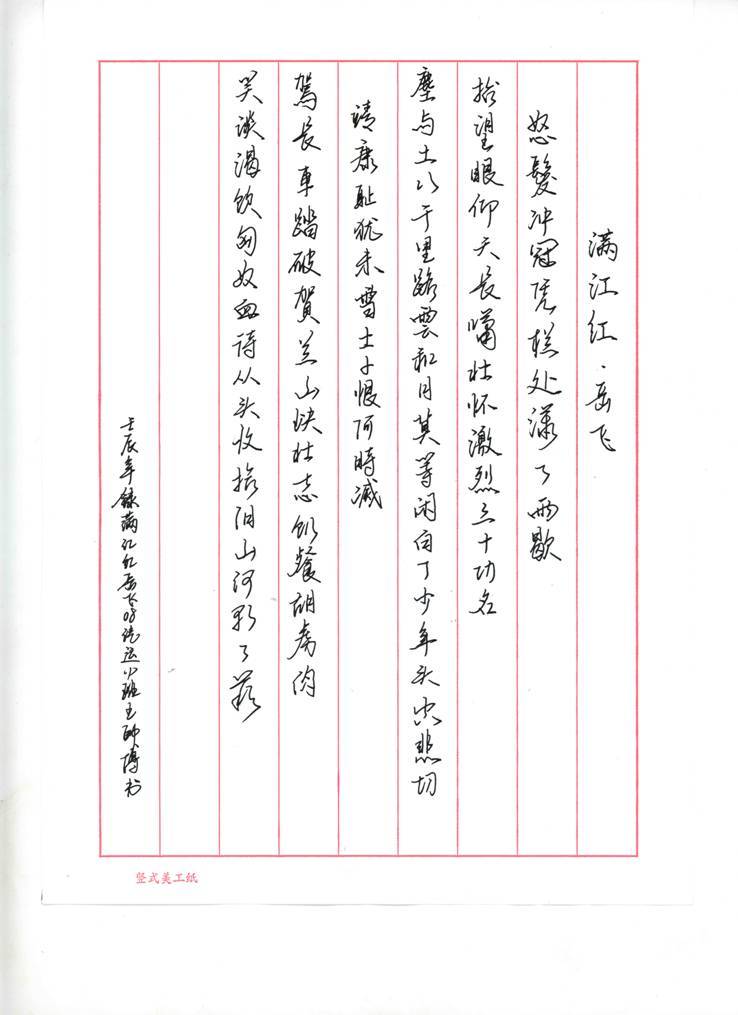 满江红·岳飞
怒髮冲冠凭栏处潇了雨歇
抬望眼仰天长啸壮怀激烈三十功名
塵与土八千里路雲和月莫等闲白了少年头空悲切
靖康耻犹未雪士子恨何時滅
駕長車踏破賀兰山缺壮志饥餐胡虏肉
笑谈渴饮匈奴血待从头收拾旧山河朝了
壬辰年錄满江红岳飞08 运 班王帅博书
竖式美工纸